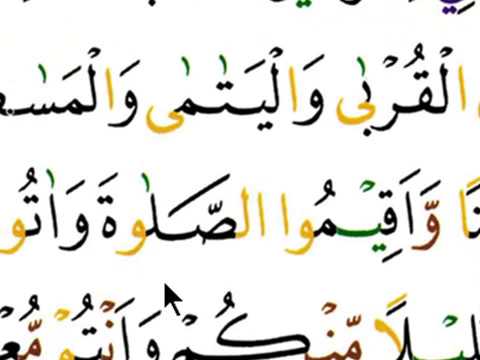 الْقُرْبٰى وَالْيَتٰمٰى وَالْمَسٰ
نًا وَّاَقِيْمُوا الصَّلٰوةَ وَاٰتُو
لِيْلًا مِّنْكُمْ وَاَنْتُمْ مُّعْ